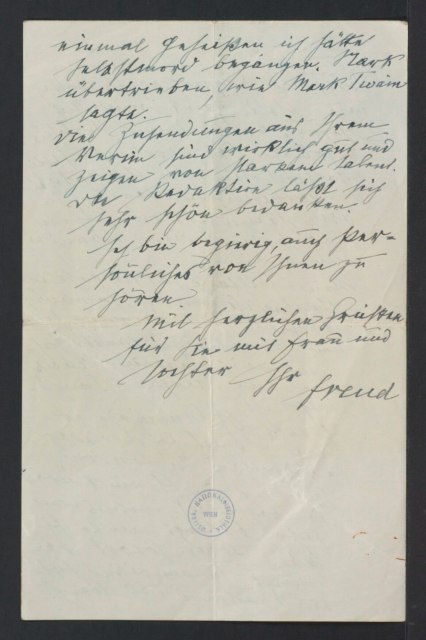 einmal geheißen ich hätte
Selbstmord begangen. Stark
übertrieben, wie Mark Twain
sagte.
Die Zusendungen aus Ihrem
Verein sind wirklich gut und
zeigen von starkem Talent.
Die Redaktion läßt sich
sehr schön bedanken.
Ich bin begierig, auch Per-
sönliches von Ihnen zu
hören.
Mit herzlichen Grüßen
für Sie mit Frau und
Tochter Ihr
Freud
WIEN